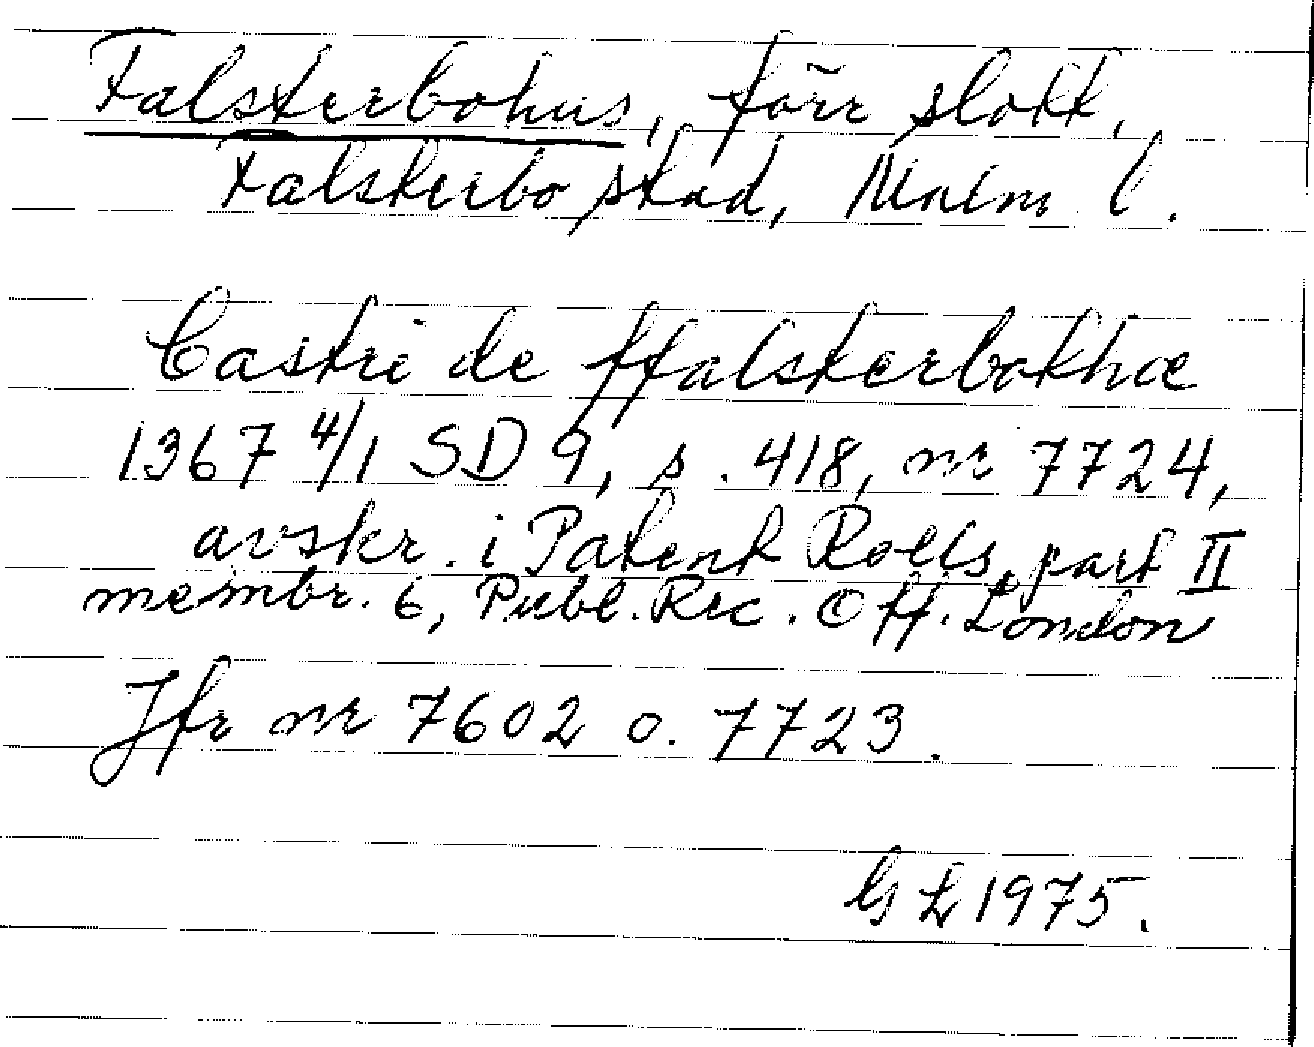 Falsterbohus, förr slott,
Falsterbo stad, Malm l.
Castri de ffalsterbothœ
1367 4/1 SD 9, s. 418, nr 7724,
avskr. i Patent Rolls, part II
membr. 6, Publ. Rec. Off. London
Jfr nr 7602 o. 7723.
GL 1975.